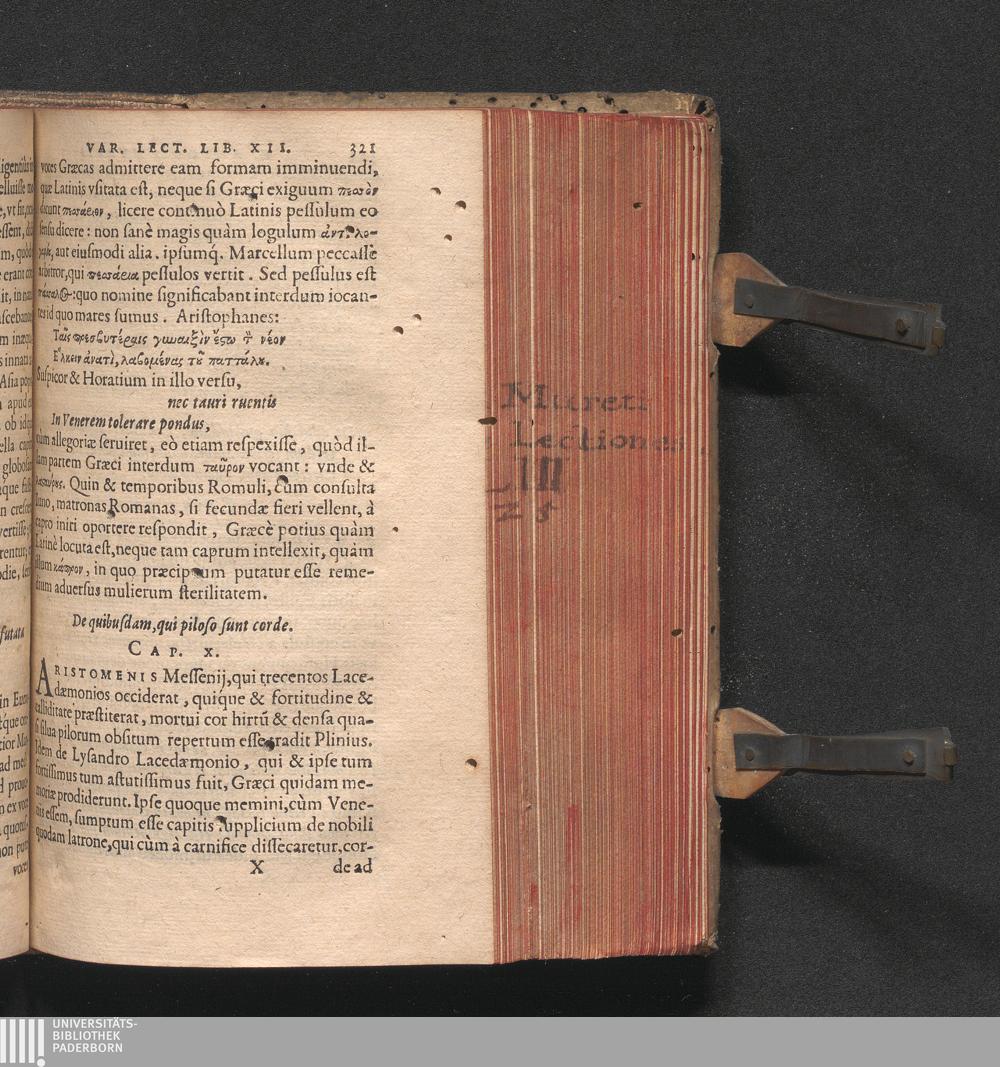 VAR. LECT. LIB. XII. 321
voces Græcas admittere eam formam imminuendi,
quæ Latinis vsitata est, neque si Græci exiguum πεσσὸν
dicunt πεσσάριον, licere continuò Latinis pessulum eo
sensu dicere: non sanè magis quàm logulum
aut eiusmodi alia. ipsumq́. Marcellum peccasse
arbitror, qui πεσσάρια pessulos vertit. Sed pessulus est
πάσσαλος: quo nomine significabant interdum iocan-
tes id quo mares sumus. Aristophanes:
Ταῖς πρεσβυτέραις γυναιξὶν ἔστω τ̀ νέον
Ἕλκειν ἀνατὶ, λαβομένας τοῦ παττάλου.
Suspicor & Horatium in illo versu,
nec tauri ruentis
In Venerem tolerare pondus,
cùm allegoriæ seruiret, eò etiam respexisse, quòd il-
lam partem Græci interdum ταῦρον vocant: vnde &
Quin & temporibus Romuli, cum consulta
Iuno, matronas Romanas, si fecundæ fieri vellent, à
capro iniri oportere respondit, Græcè potius quàm
Latinè locuta est, neque tam caprum intellexit, quàm
illum κάπρον, in quo præcipuum putatur esse reme-
dium aduersus mulierum sterilitatem.
De quibusdam, qui piloso sunt corde.
CAP. X.
ARISTOMENIS Messenij, qui trecentos Lace-
dæmonios occiderat, quique & fortitudine &
calliditate præstiterat, mortui cor hirtū & densa qua-
si silua pilorum obsitum repertum esse tradit Plinius.
Idem de Lysandro Lacedæmonio, qui & ipse tum
fortissimus tum astutissimus fuit, Græci quidam me-
moriæ prodiderunt. Ipse quoque memini, cùm Vene-
tiis essem, sumptum esse capitis supplicium de nobili
quodam latrone, qui cùm à carnifice dissecaretur, cor-
X de ad
Mureti
Lectiones
LIII
25
UNIVERSITÄTS-
BIBLIOTHEK
PADERBORN